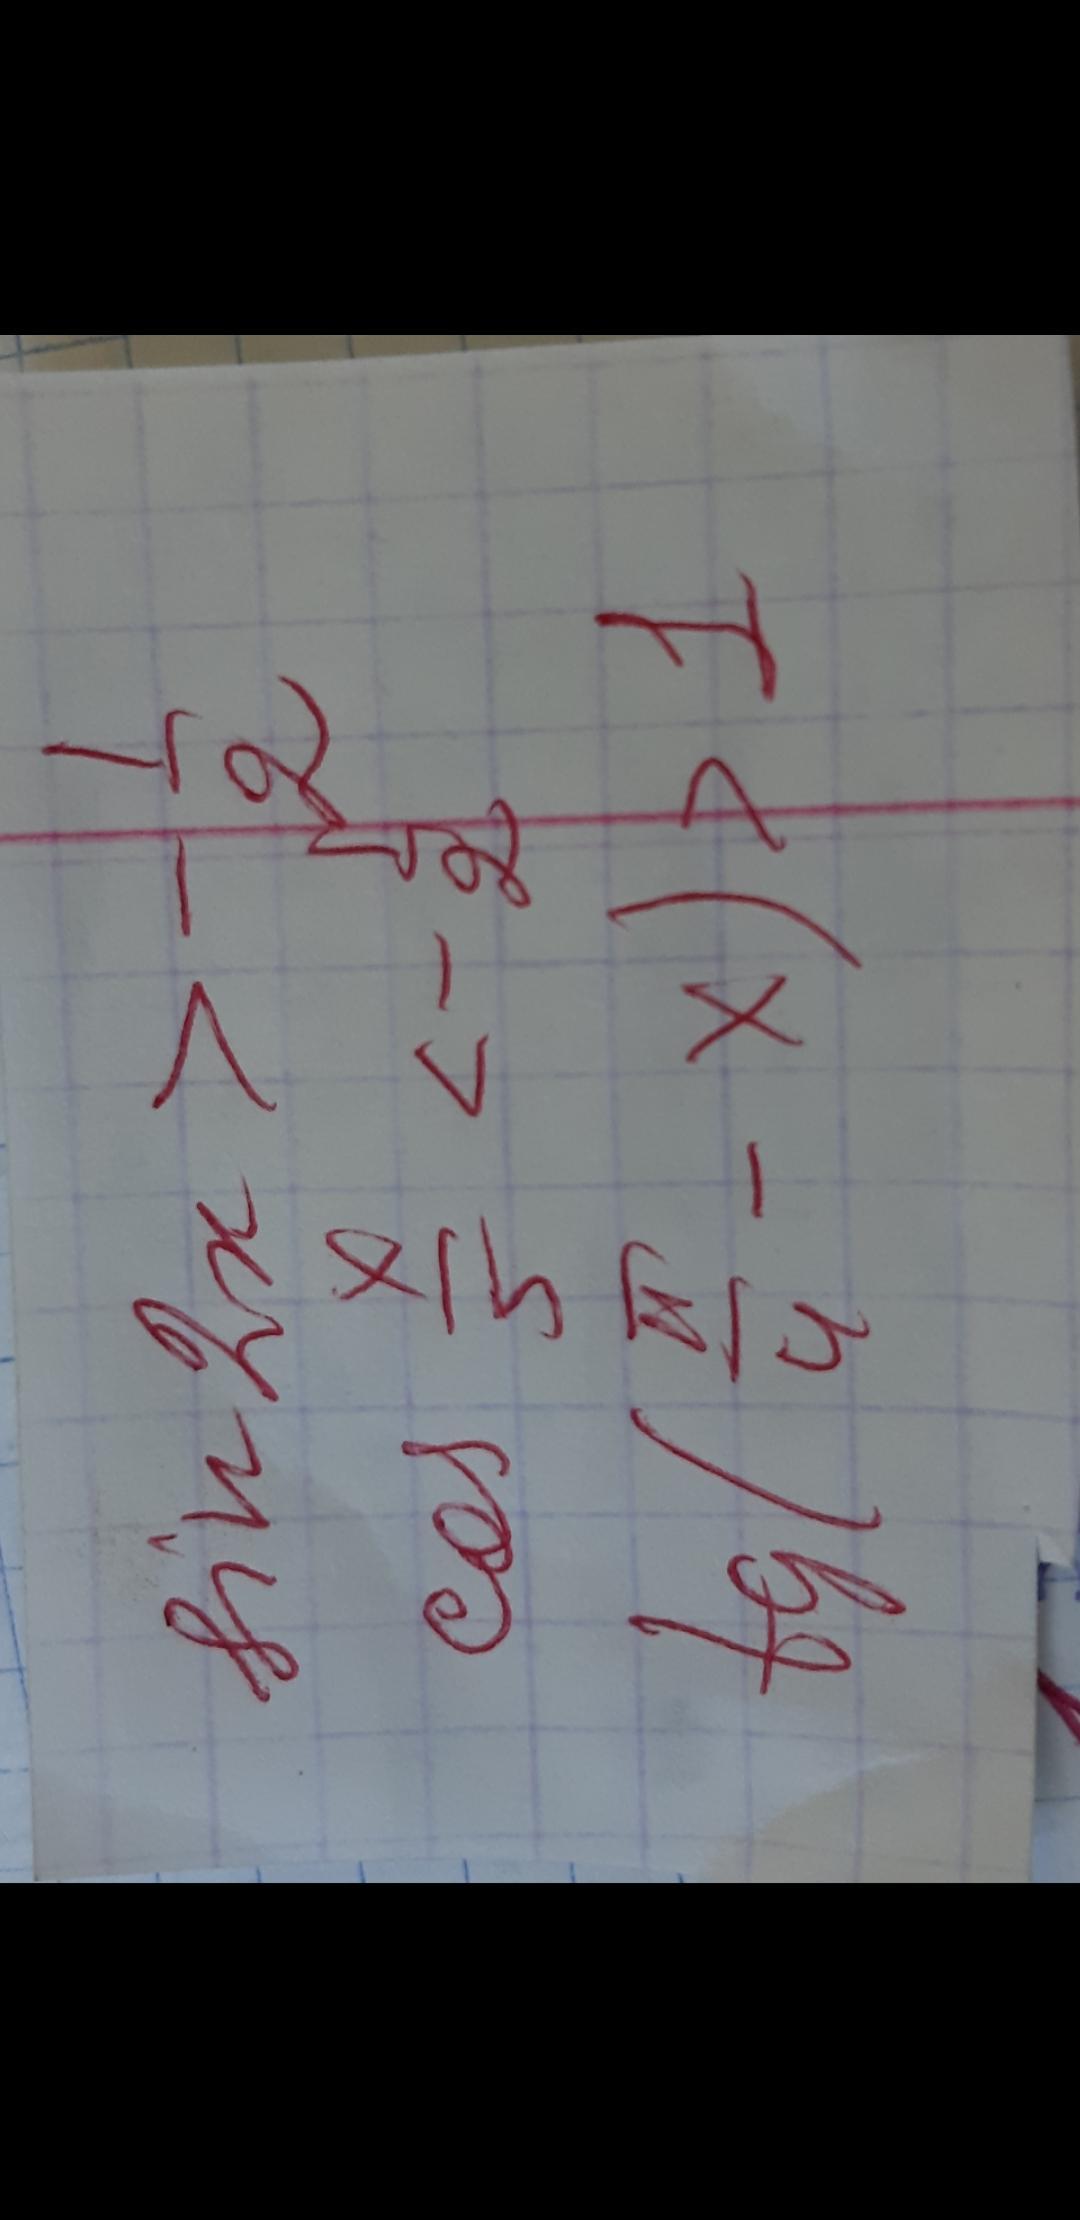 sin 2x > - 1/2
cos x/5 < - 1/2
tg (π/4 - x) > 1